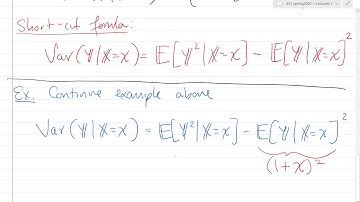 431_spring2020 > Lectures 1
Short-cut formula:
Var(Y|X=x) = E[Y²|X=x] - E[Y|X=x]²
Ex. Continue example above
Var(Y|X=x) = E[Y²|X=x] - E[Y|X=x]²
(1+x)²